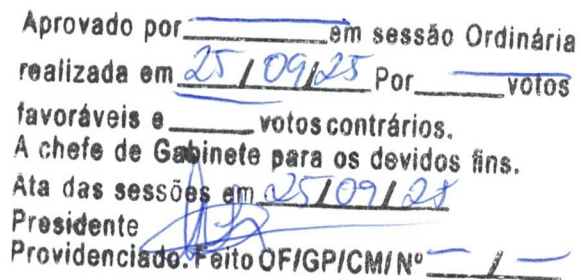 Aprovado por_______em sessão Ordinária
realizada em 25/09/25 Por_______votos
favoráveis e_____votos contrários.
A chefe de Gabinete para os devidos fins.
Ata das sessões em 25/09/25
Presidente
Providenciado. Feito OF/GP/CM/Nº — / —